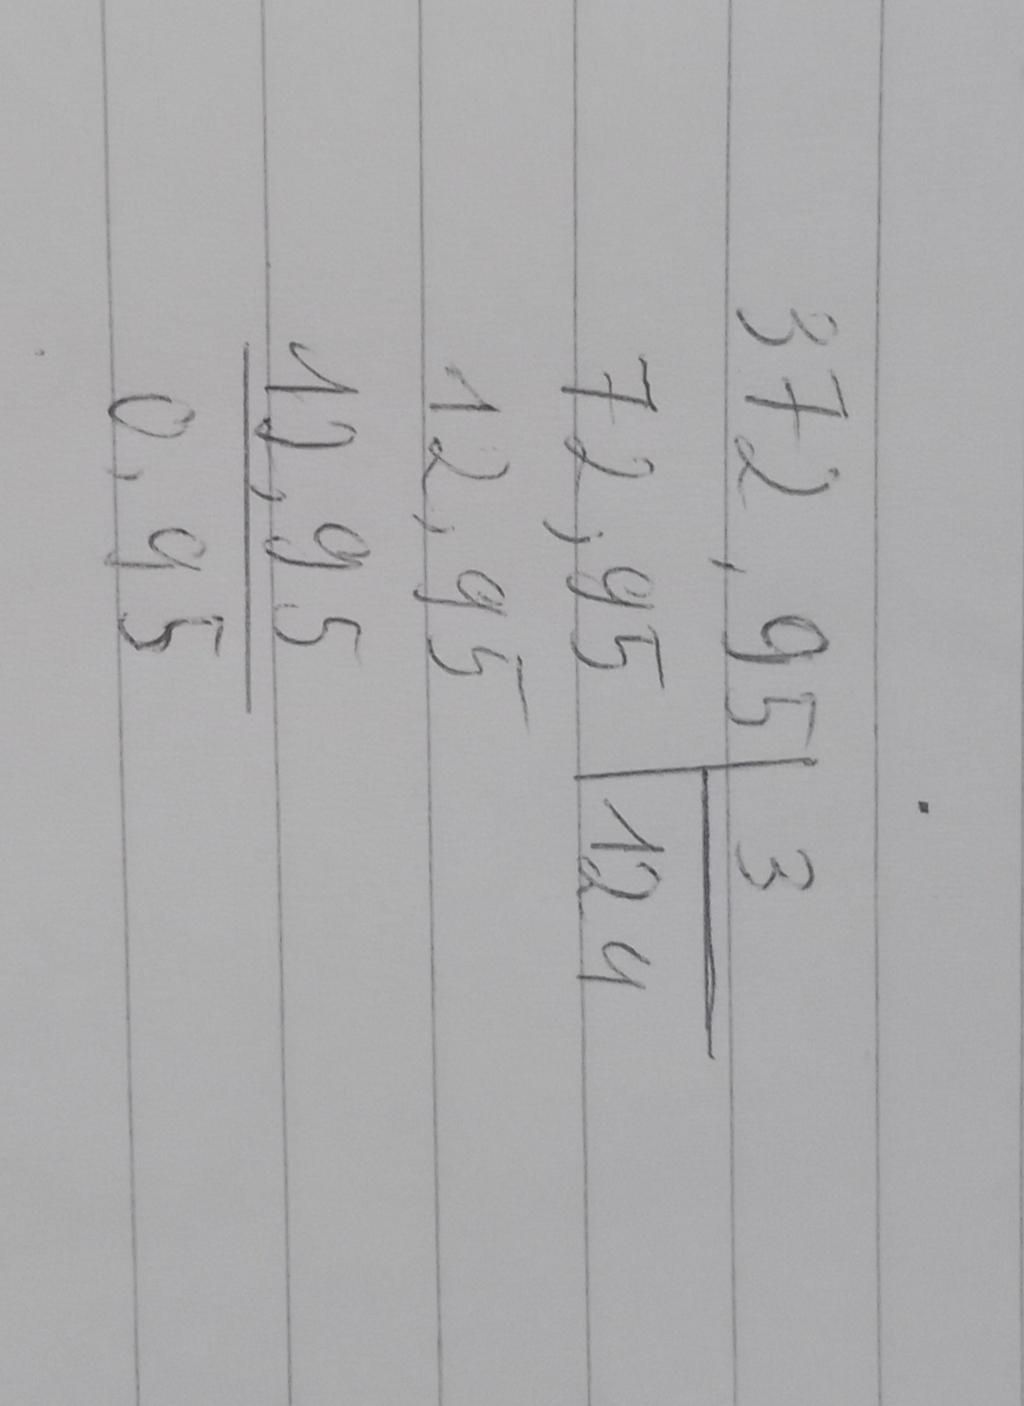 372,95 3
72,95 124
12,95
12,95
0,95